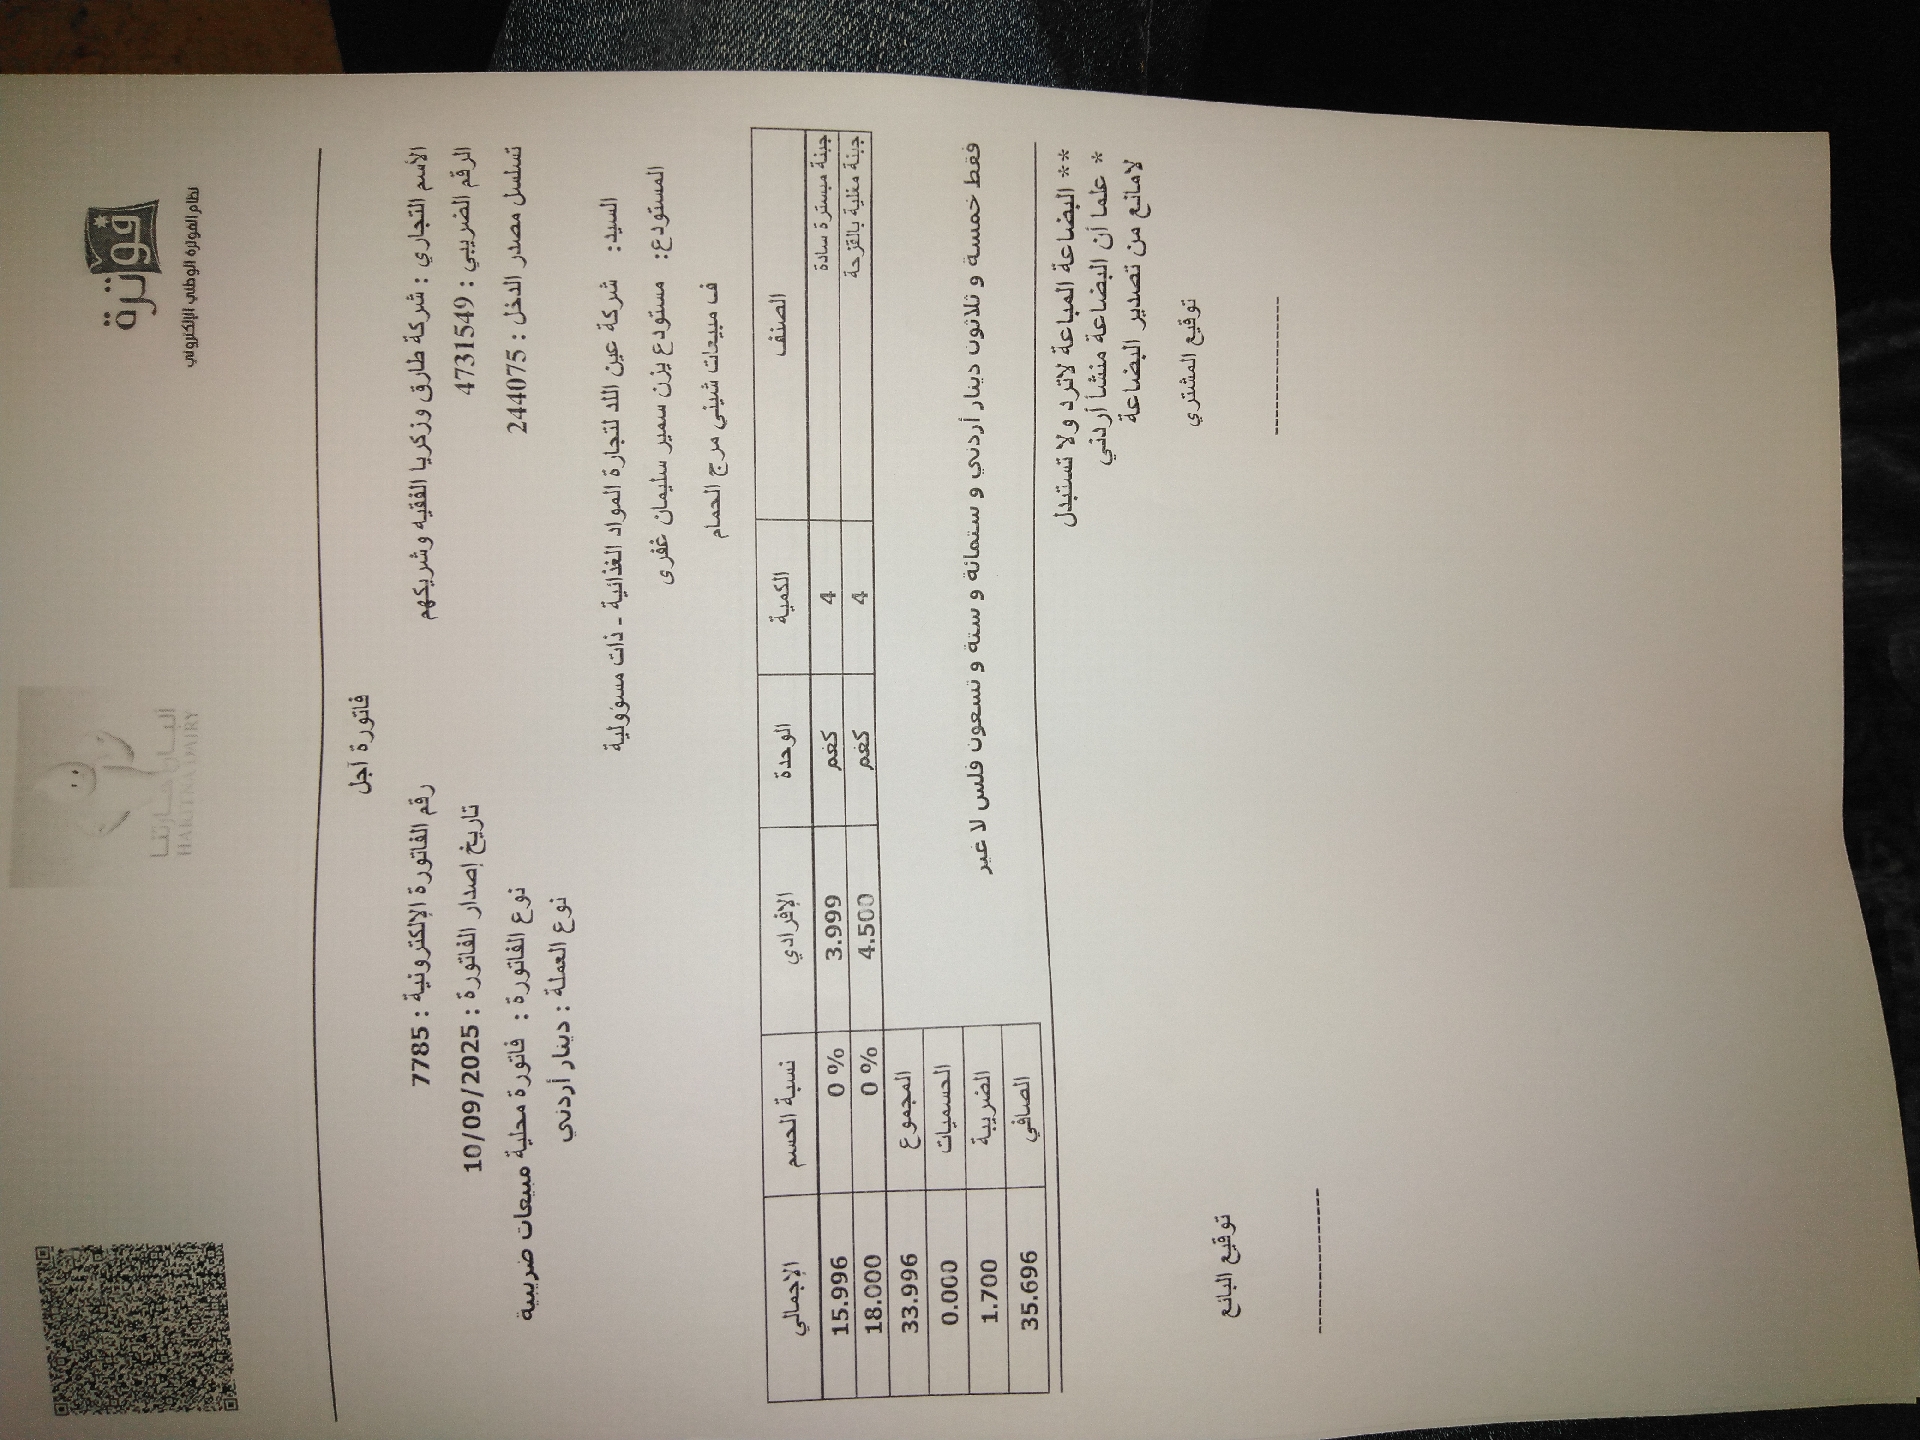 فوترة
نظام الفوترة الوطني الإلكتروني
البان حارتنا
HARITNA DAIRY
فاتورة آجل
الأسم التجاري : شركة طارق وزكريا الفقيه وشريكهم
رقم الفاتورة الإلكترونية : 7785
الرقم الضريبي : 4731549
تاريخ إصدار الفاتورة : 10/09/2025
تسلسل مصدر الدخل : 244075
نوع الفاتورة : فاتورة محلية مبيعات ضريبية
نوع العملة : دينار أردني
السيد: شركة عين اللد لتجارة المواد الغذائية - ذات مسؤولية
المستودع: مستودع يزن سمير سليمان غفرى
ف مبيعات شيني مرج الحمام
الصنف الكمية الوحدة الإفرادي نسبة الحسم الإجمالي
جبنة مبسترة سادة 4 كغم 3.999 0 % 15.996
جبنة مغلية بالقزحة 4 كغم 4.500 0 % 18.000
المجموع 33.996
الحسميات 0.000
الضريبة 1.700
الصافي 35.696
فقط خمسة و ثلاثون دينار أردني و ستمائة و ستة و تسعون فلس لا غير
** البضاعة المباعة لاترد ولا تستبدل
* علما أن البضاعة منشأ أردني
لامانع من تصدير البضاعة
توقيع المشتري
توقيع البائع